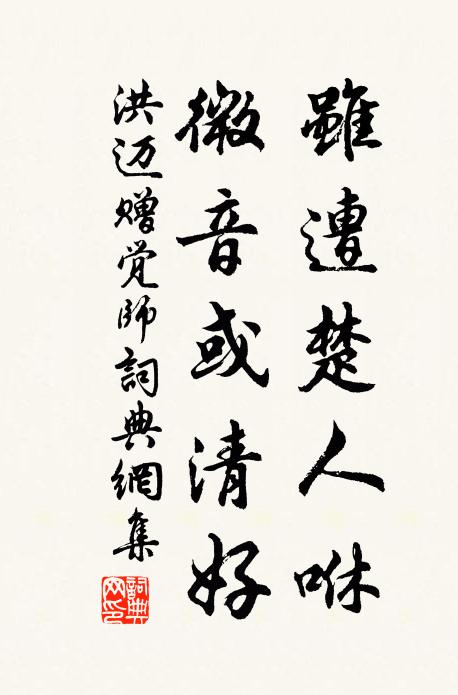 雖遭楚人咻
微音或清好
洪迈赠觉师詞典網集
詞典网印